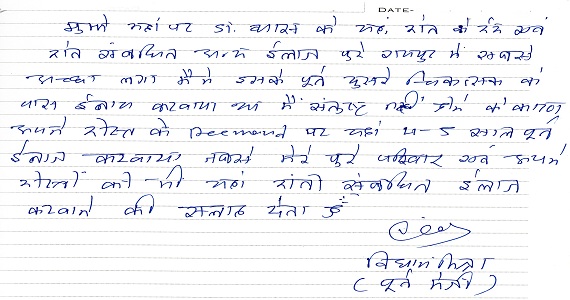 DATE-
मुझे यहां पर डॉ. व्यास के यहां, दांत के दर्द एवं
दांत संबंधित अन्य ईलाज पुरे रायपुर में सबसे
अच्छा लगा मैंने इसके पूर्व दुसरे चिकित्सक के
पास ईलाज करवाया था मैं संतुष्ट नहीं होने के कारण
अपने दोस्त के पर यहां 4-5 साल पूर्व
ईलाज करवाया जबसे मेरे पुरे परिवार एवं अपने
दोस्तों को भी यहां दांतो संबंधित ईलाज
करवाने की सलाह देता हूँ
विधान मिश्रा
( पूर्व मंत्री )